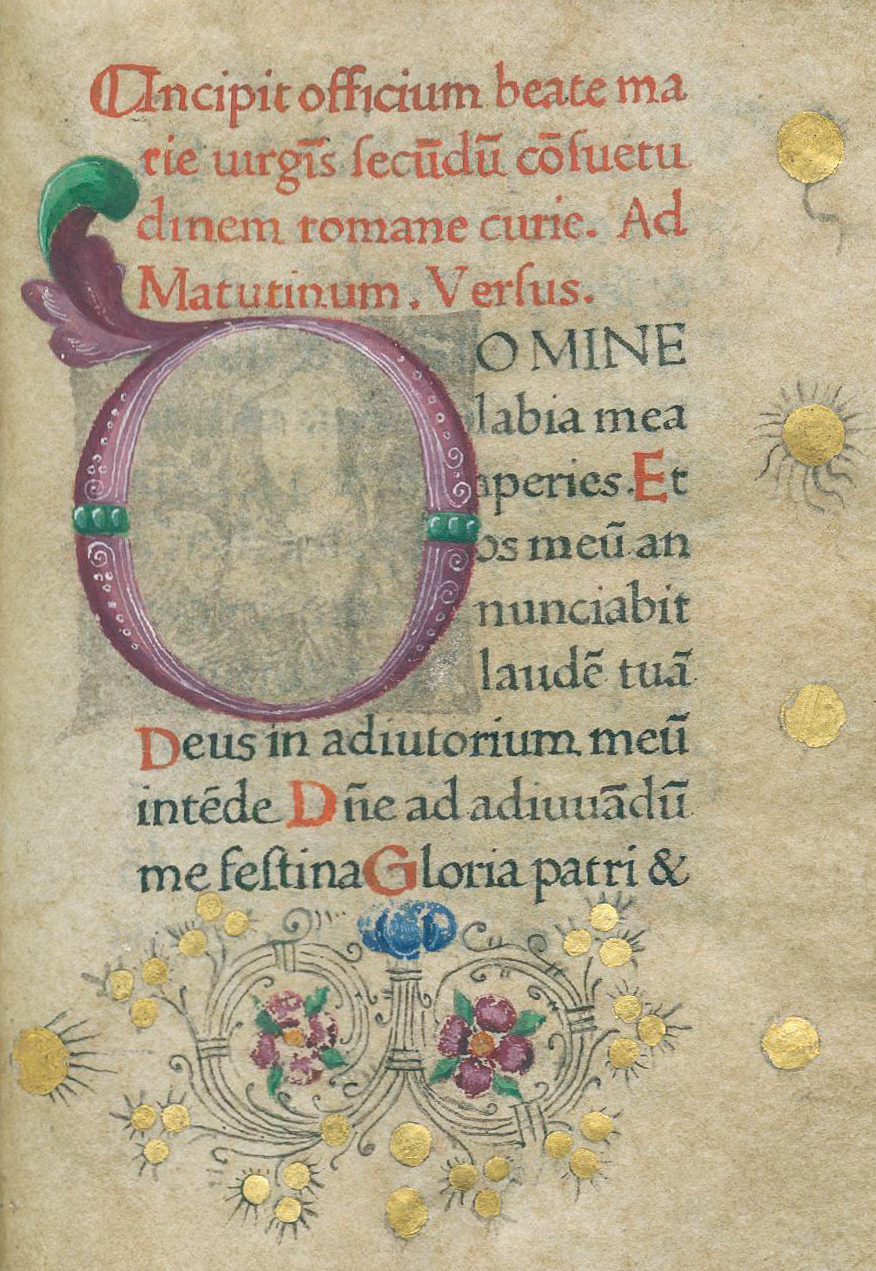 Incipit officium beate ma
rie uirgīs ſecūdū cōſuetu
dinem romane curie. Ad
Matutinum. Verſus.
DOMINE
labia mea
aperies. Et
os meū an
nunciabit
laudē tuā
Deus in adiutorium meū
intēde Dn̄e ad adiuuādū
me feſtina Gloria patri &